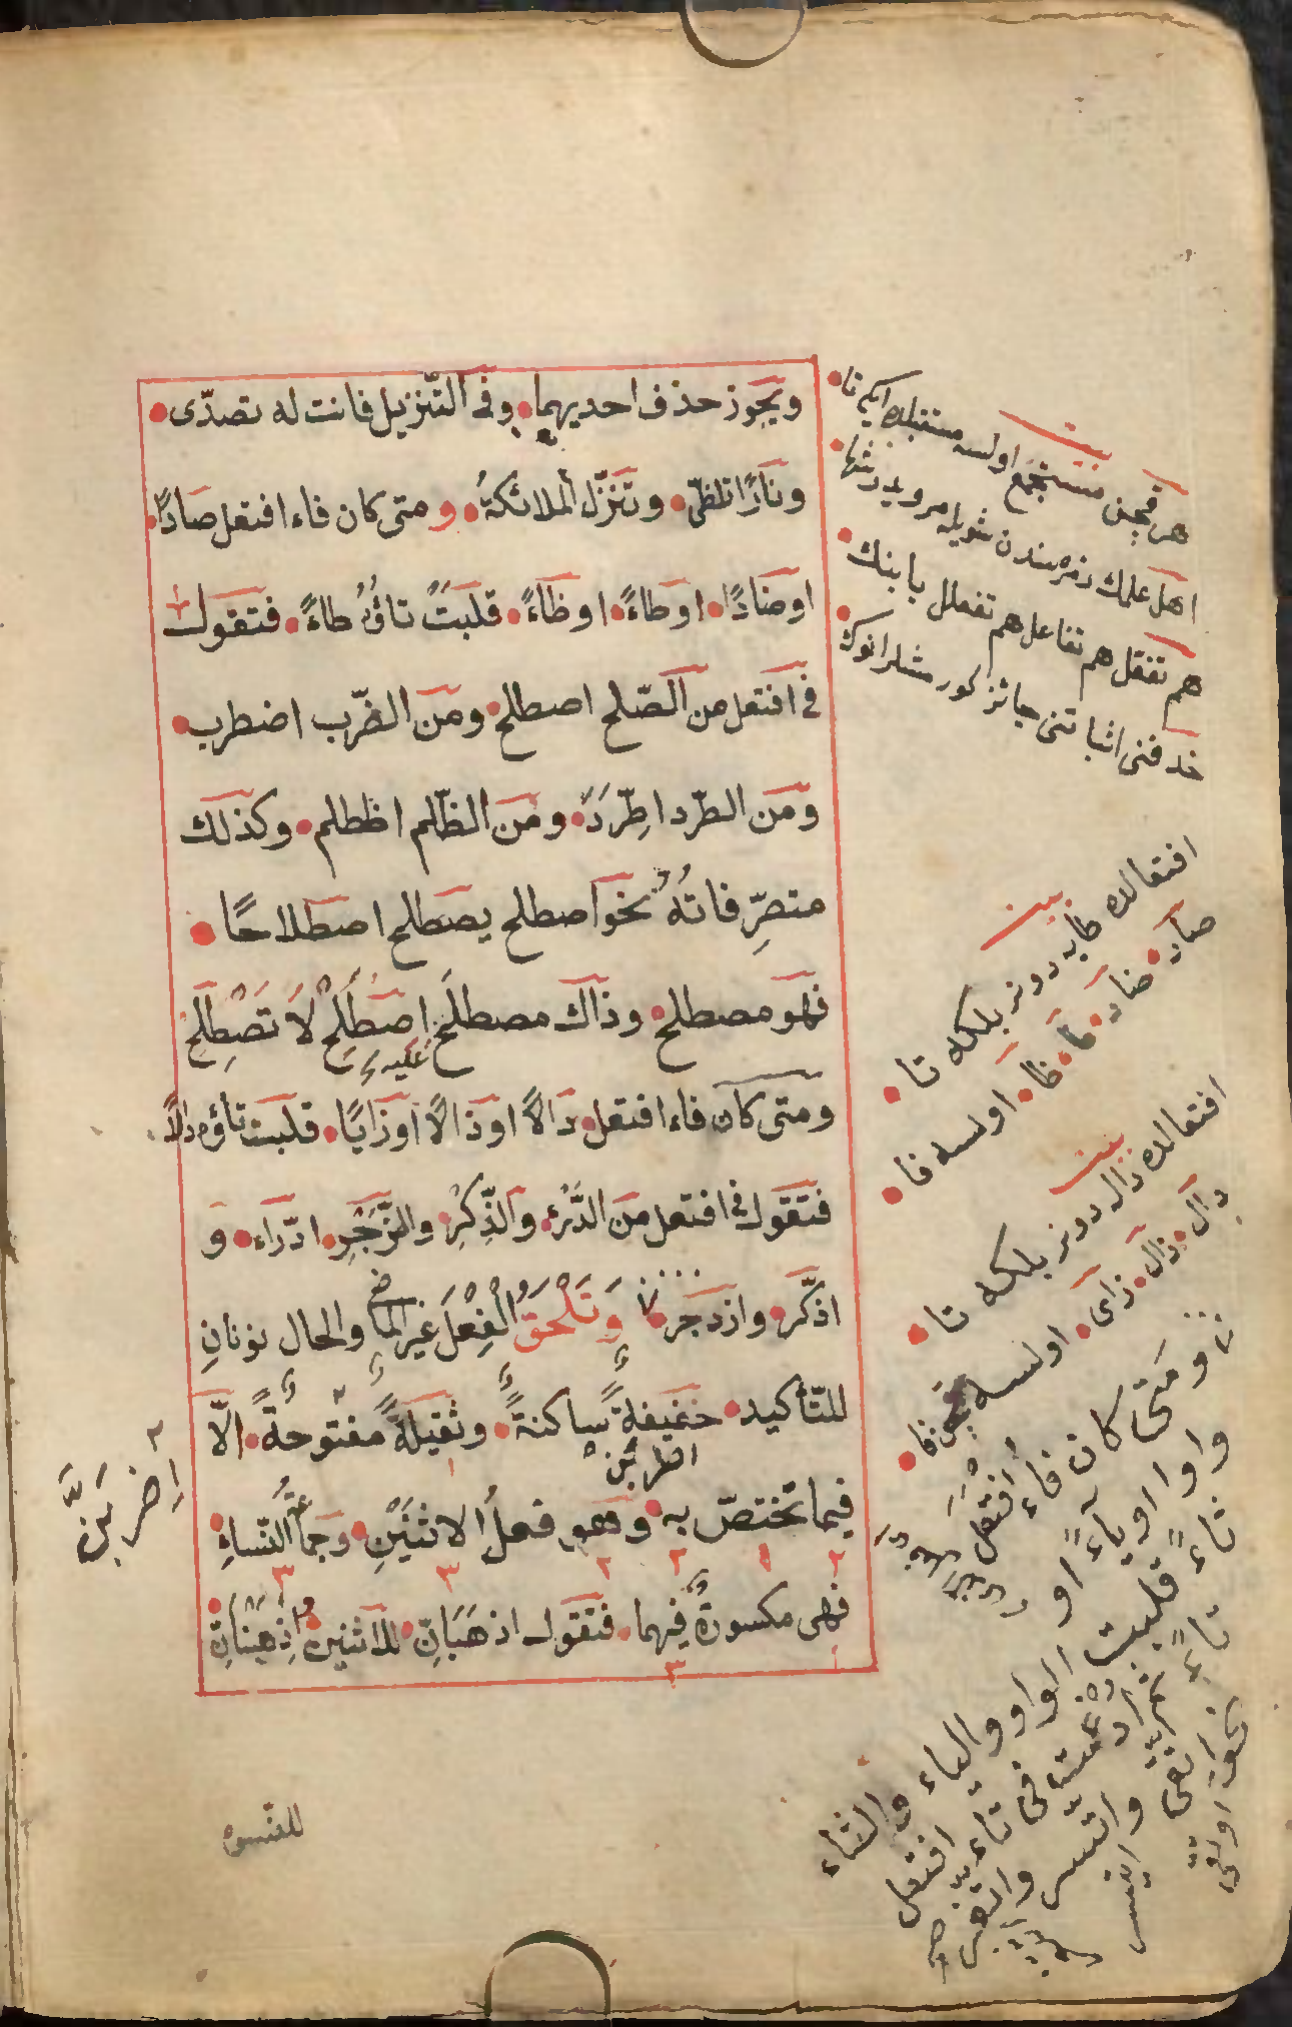 ويجوز حذف احديهما وفى التنزيل فانت له تصدّى
ونارًا تلظّى وتنزّل الملائكةُ ومتى كان فاء افتعل صادًا
اوضادًا اوطاءً اوظاءً قلبت تاؤُهُ طاءً فتقول
فى افتعل من الصّلح اصطلح ومن الضّرب اضطرب
ومن الطّرد اطِّرَدَ ومن الظّلم اظطلم وكذلك
متصرِّفاتُهُ نحو اصطلح يصطلح اصطلاحًا
فهو مصطلح وذاك مصطلَح عليه اِصْطَلِحْ لَا تَصْطَلِحْ
ومتى كان فاء افتعل دالًا اوذالًا اوزايًا قلبت تاؤه دالًا
فتقول فى افتعل من الدَّرْءِ والذِّكْرِ والزَّجْرِ ادّراء و
اذّكّر وازدجر وَتَلْحَقُ الْفِعْلَ غير الماضى والحال نونانِ
للتّأكيد خفيفةً ساكنةً وثقيلةً مفتوحةً الّا
اضربن
فيما تختصّ به وهو فعلُ الاثنَيْنِ وجماعَةُ النّساءِ
فهى مكسورةٌ فيهما فتقول اذهَبَانِّ للاثنين واذهَبْنَانِّ
للنّسوة
اِضْرِبَنَّ
بيت
هر قچن مستجمع اولسه مستقبلده ايكى تا
اهل علمك
هم تفعّل هم تفاعل هم تفعلل يا بنك
حذفنى اثباتنى جائز كور مشلر انوك
بيت
افتعالده طايه دونر بلكه تا
صاد ضاد طا ظا اولسه فا
بيت
افتعالده دال دونر بلكه تا
دال ذال زاى اولسه فا
ومتى كان فاء افتعل
واوا او ياءً او
ثاءً قلبت الواو والياء والثاء
تاءً ثم ادغمت فى تاء افتعل
نحو اتّقى واتّسر واتّغر